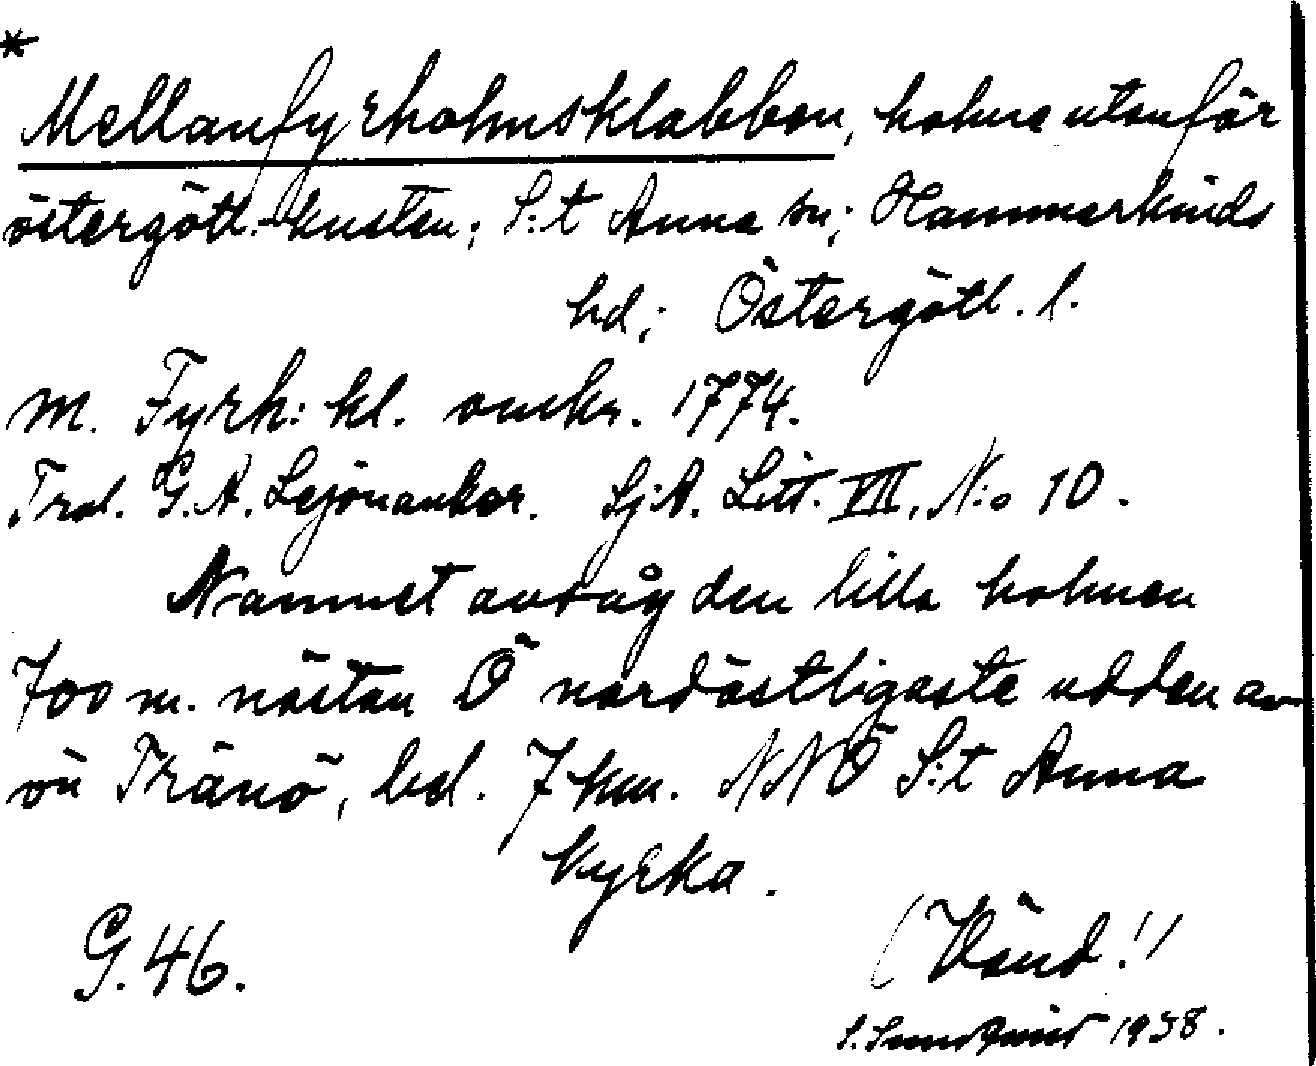 *
Mellanfyrholmsklabben, holme utanför
östergötl.-kusten; S:t Anna sn; Hammarkinds
hd; Östergötl. l.
M. Fyrh: kl. omkr. 1774.
Trol. G. A. Lejonanker. Sj:A. Litt. VIII, N:o 10.
Namnet avsåg den lilla holmen
700 m. nästan Ö nordöstligaste udden av
ön Tränö, bel. 7 km. NNÖ S:t Anna
kyrka.
G. 46.
(Vänd!)
S. Sundqvist 1938.